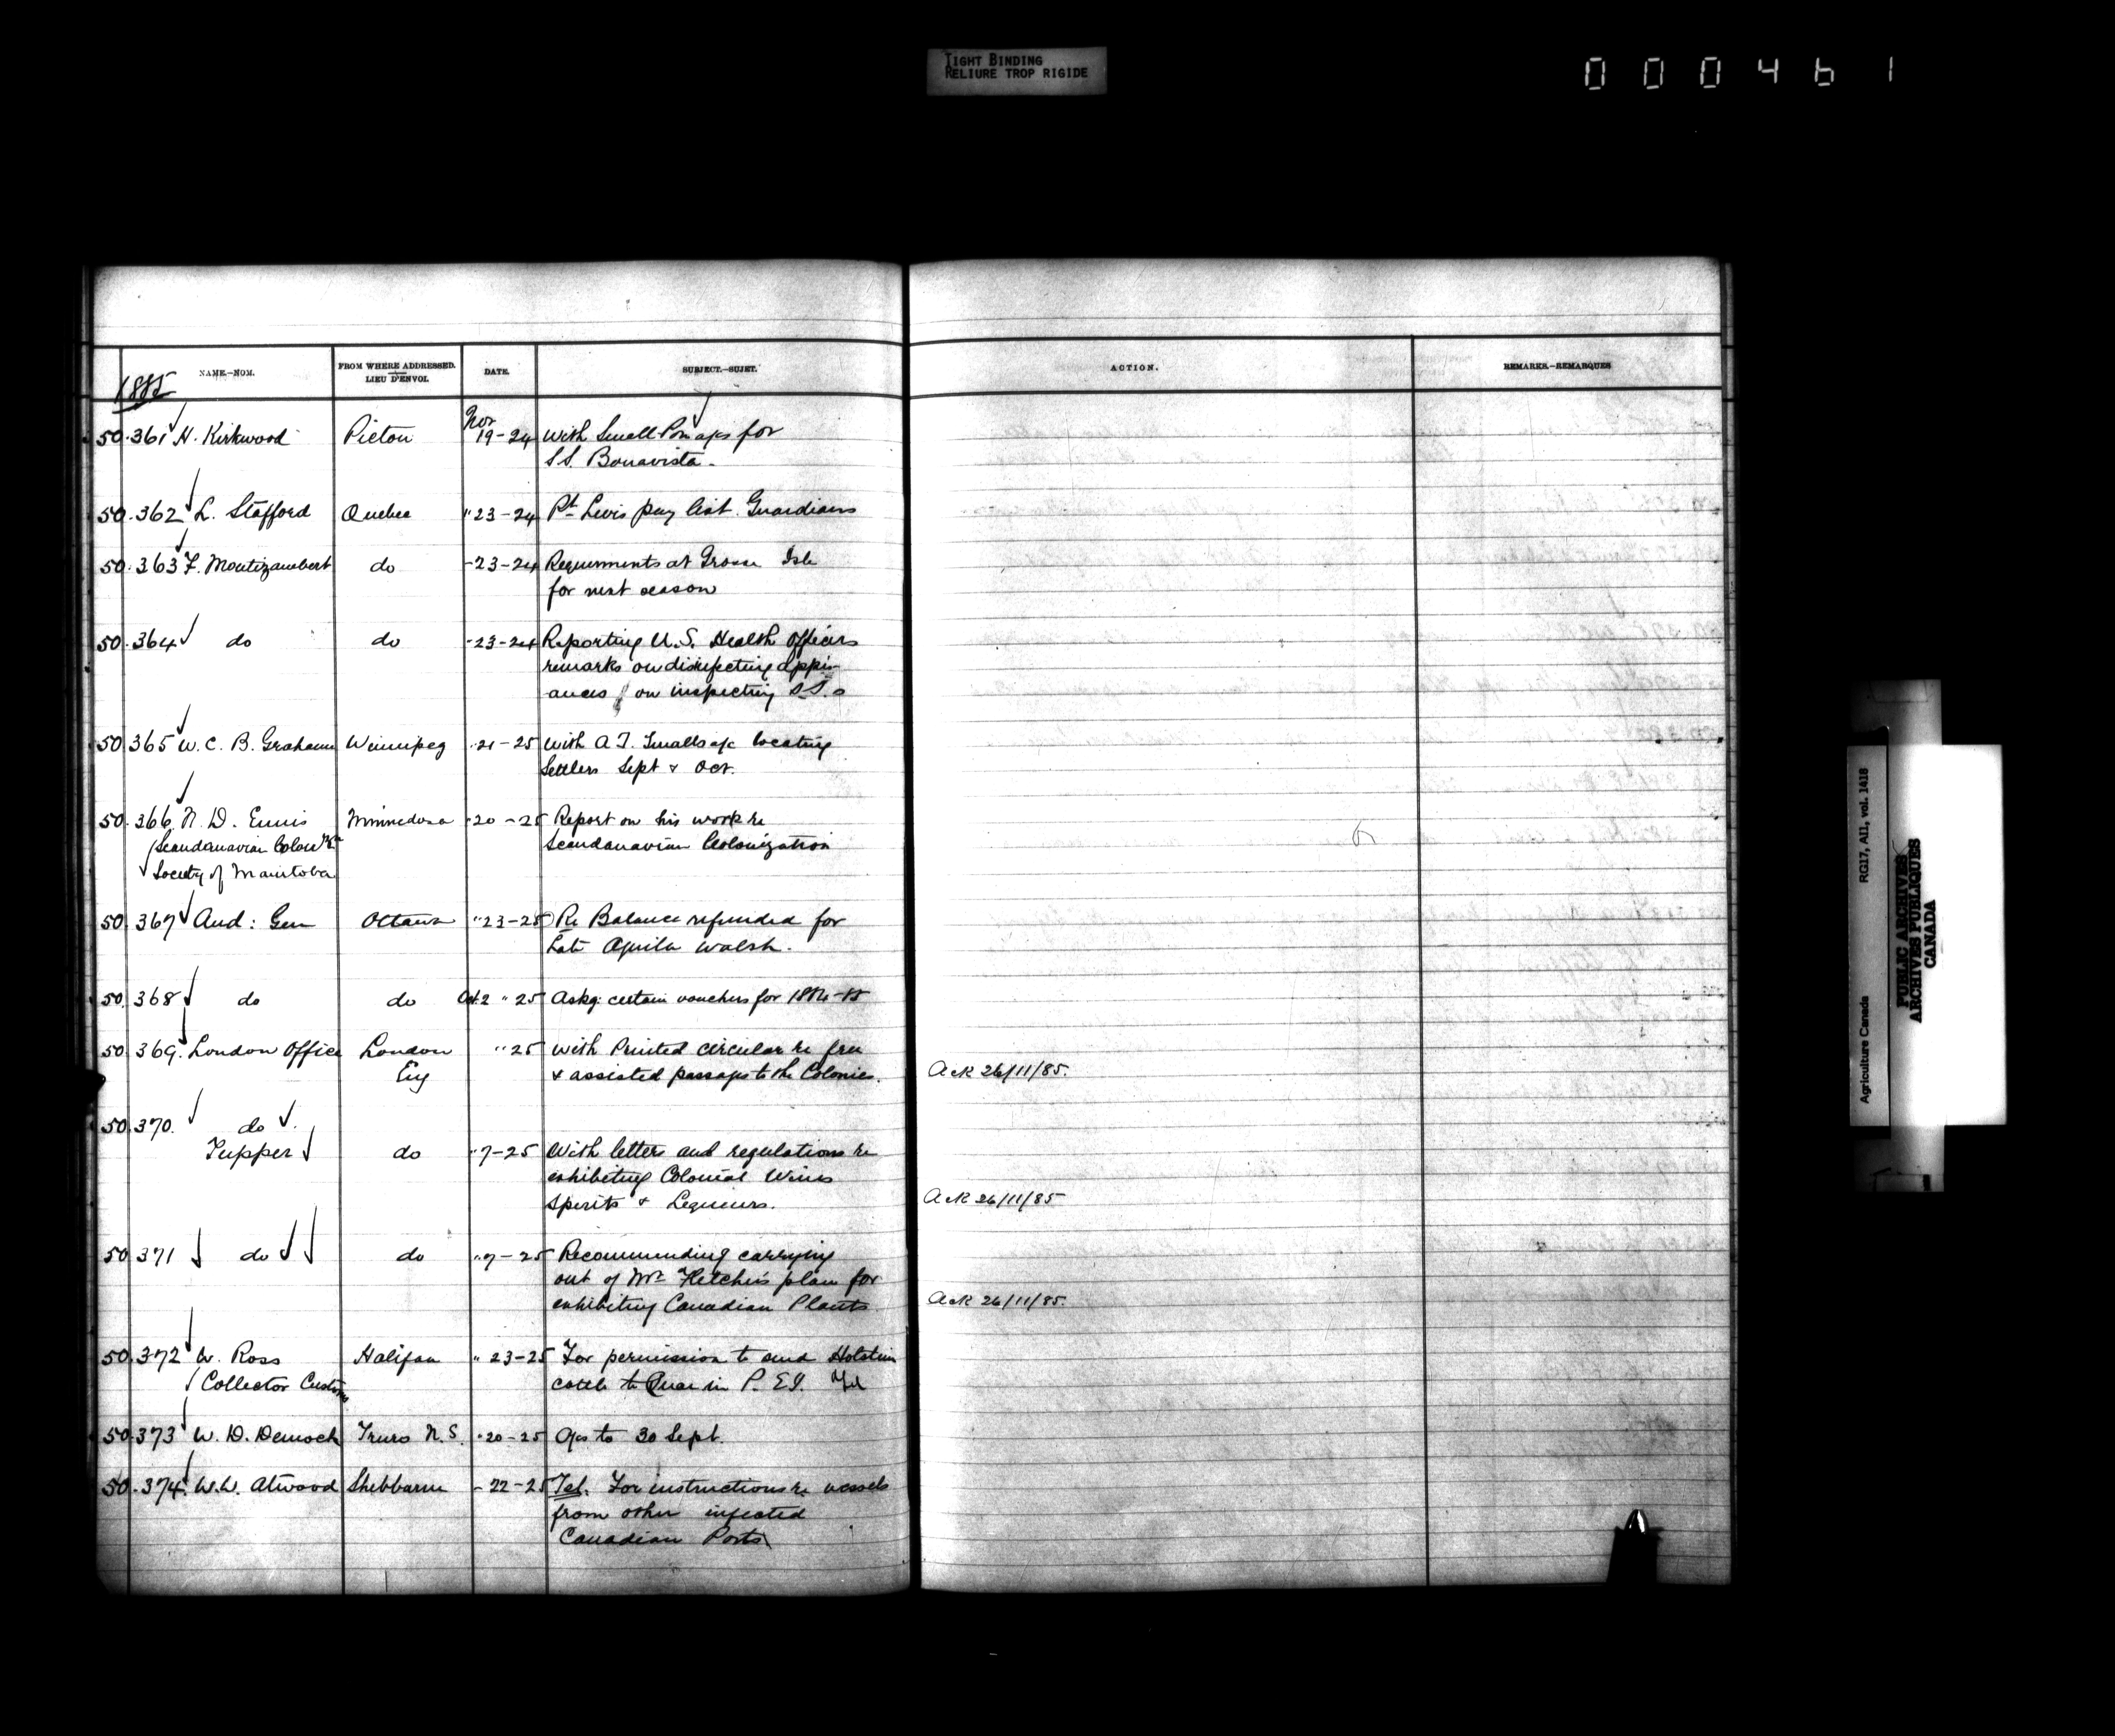 TIGHT BINDING
RELIURE TROP RIGIDE
000461
NAME.—NOM.
FROM WHERE ADDRESSED.
LIEU D'ENVOI.
DATE.
SUBJECT.—SUJET.
ACTION.
REMARKS.—REMARQUES
1885
50.361 H. Kirkwood Pictou Nov 19-24 With Small Pox a/cs for
S.S. Bonavista.
50.362 L. Stafford Quebec " 23-24 Pt Levis pay list. Guardians
50.363 F. Montizambert do -23-24 Requirments at Grosse Isle
for next season
50.364 do do -23-24 Reporting U.S. Health Officers
remarks on disinfecting appli-
ances & on inspecting S.S.s
50.365 W. C. B. Grahame Winnipeg "21-25 With A.T. Smalls a/c locating
Settlers Sept & Oct.
50.366 N. D. Ennis Minnedosa "20-25 Report on his work re
(Scandanavian Colonizn Scandanavian Colonization
Society of Manitoba
50.367 Aud: Gen Ottawa "23-25 Re Balance refunded for
Late Aquila Walsh.
50.368 do do Oct. 2 " 25 Askg: certain vouchers for 1884-85
50.369. London Office London " 25 With Printed circular re free
Eng & assisted passages to the Colonies. Ack 26/11/85.
50.370. do
Tupper do "7-25 With letters and regulations re
exhibiting Colonial Wines
Spirits & Liqueurs. Ack 26/11/85
50.371 do do "7-25 Recommending carrying
out of Mr Fletcher's plan for
exhibiting Canadian Plants Ack 26/11/85.
50.372 W. Ross Halifax " 23-25 For permission to send Holstein
Collector Customs cattle to Quar in P.E.I. Tel
50.373 W. D. Dimock Truro N.S. "20-25 a/cs to 30 Sept.
50.374. W.W. Atwood Shelbarne - 22-25 Tel. For instructions re vessels
from other infected
Canadian Ports
Agriculture Canada RG17, AII, vol. 1418
PUBLIC ARCHIVES
ARCHIVES PUBLIQUES
CANADA